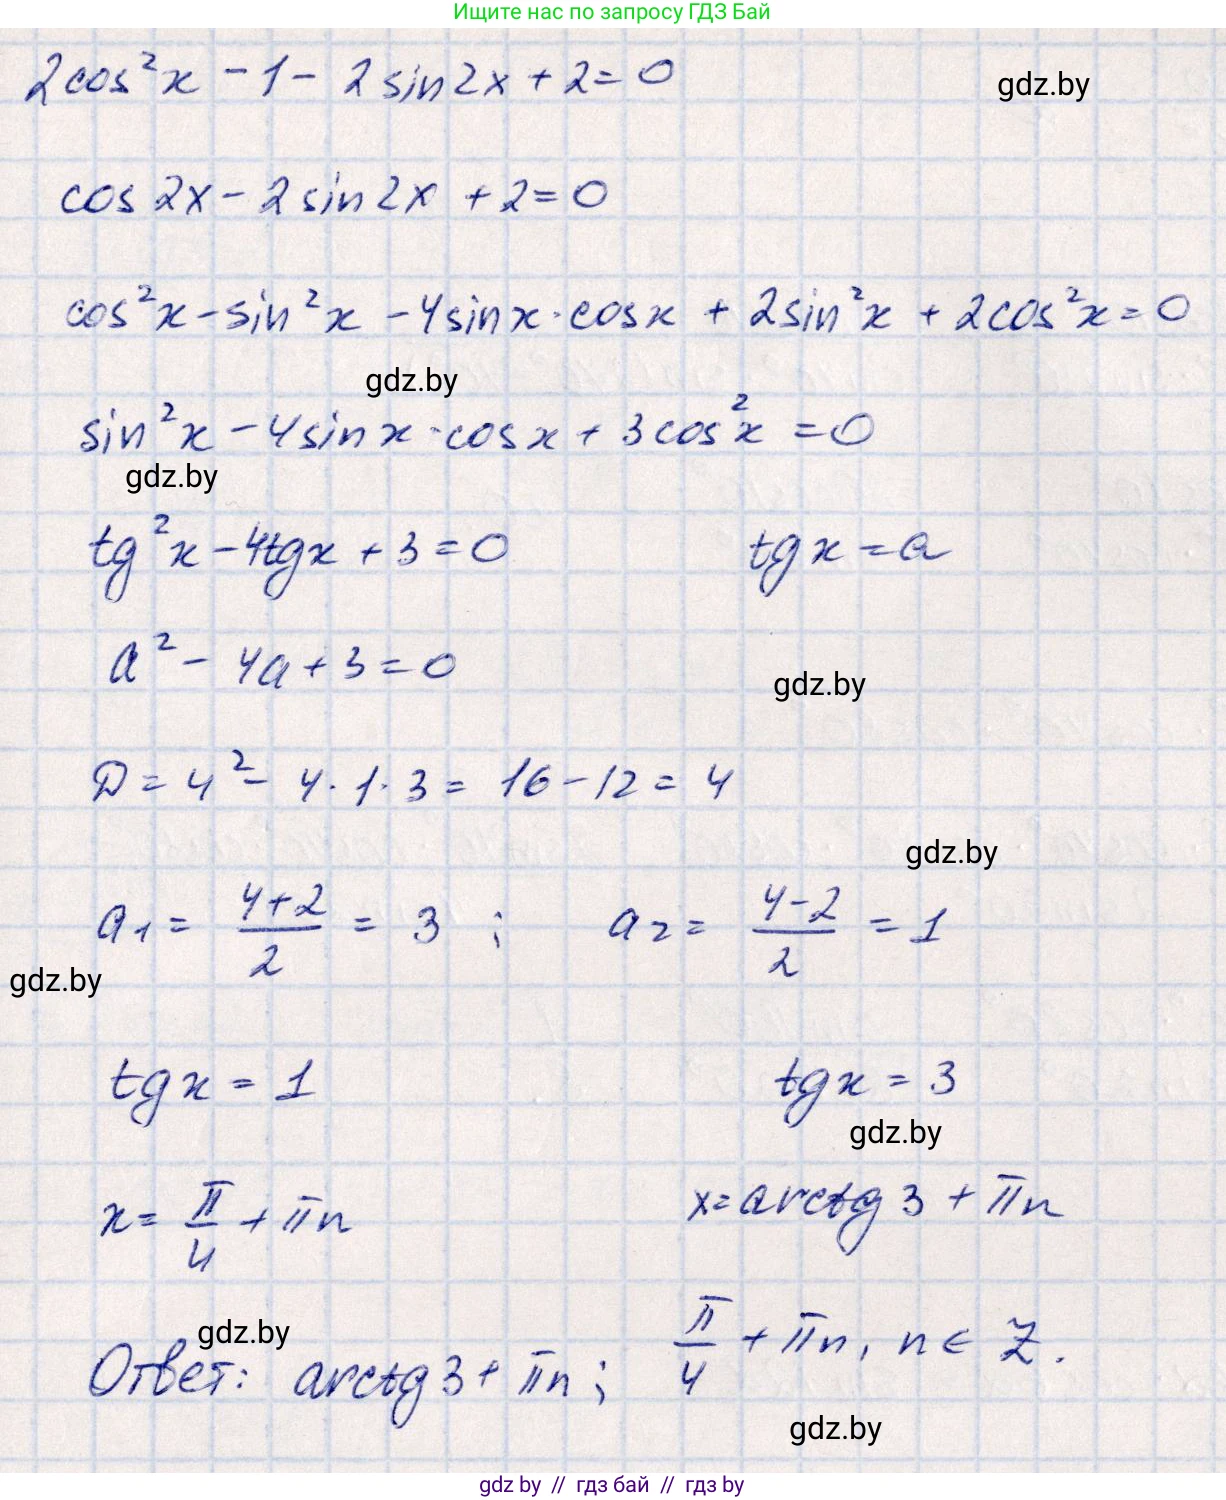 Ищите нас по запросу ГДЗ Бай
2cos²x - 1 - 2sin2x + 2 = 0
gdz.by
cos2x - 2sin2x + 2 = 0
cos²x - sin²x - 4sinx·cosx + 2sin²x + 2cos²x = 0
gdz.by
sin²x - 4sinx·cosx + 3cos²x = 0
gdz.by
tg²x - 4tgx + 3 = 0 tgx = a
a² - 4a + 3 = 0
gdz.by
D = 4² - 4·1·3 = 16 - 12 = 4
gdz.by
a₁ = (4+2)/2 = 3 ; a₂ = (4-2)/2 = 1
gdz.by
tgx = 1 tgx = 3
gdz.by
x = π/4 + πn x = arctg3 + πn
gdz.by
Ответ: arctg3 + πn ; π/4 + πn, n ∈ Z.
gdz.by
gdz by // гдз бай // гдз by